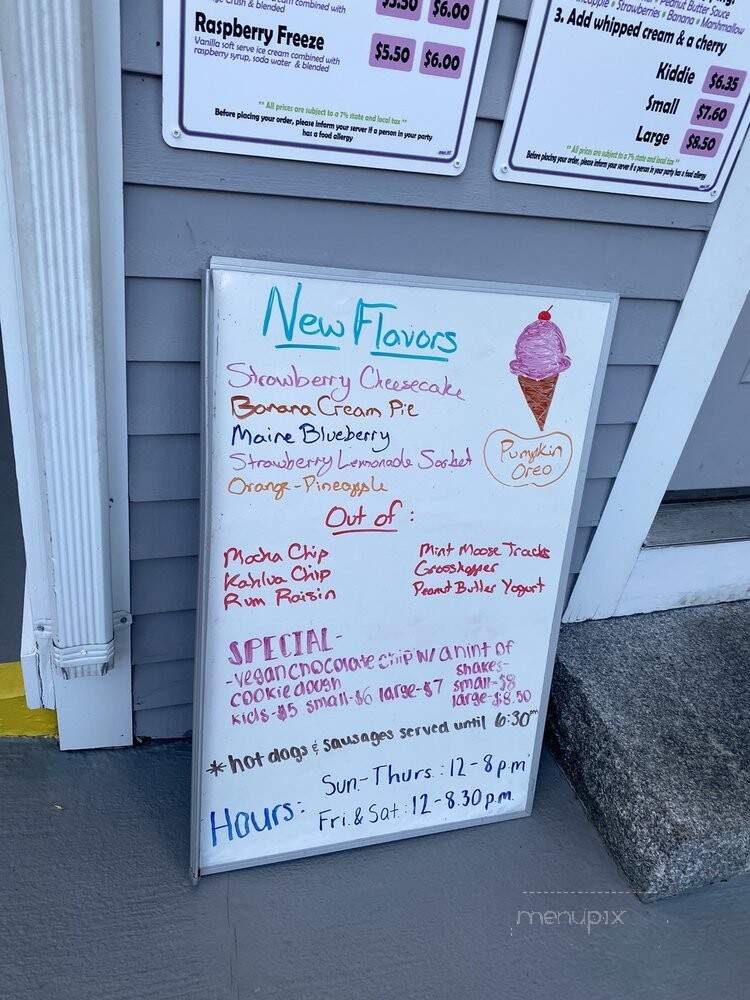 combined with
& blended
$5.50 $6.00
Raspberry Freeze
Vanilla soft serve ice cream combined with
raspberry syrup, soda water & blended
$5.50 $6.00
** All prices are subject to a 7% state and local tax **
Before placing your order, please inform your server if a person in your party
has a food allergy
Peanut Butter Sauce
Strawberries • Banana • Marshmallow
3. Add whipped cream & a cherry
Kiddie $6.35
Small $7.60
Large $8.50
** All prices are subject to a 7% state and local tax **
Before placing your order, please inform your server if a person in your party has a food allergy
New Flavors
Strawberry Cheesecake
Banana Cream Pie
Maine Blueberry
Strawberry Lemonade Sorbet
Orange-Pineapple
Pumpkin
Oreo
Out of:
Mocha Chip
Kahlua Chip
Rum Raisin
Mint Moose Tracks
Grasshopper
Peanut Butter Yogurt
SPECIAL-
-vegan chocolate chip w/ a hint of
cookie dough
kids-$5 small-$6 large-$7
shakes-
small-$8
large-$8.50
*hot dogs & sausages served until 6:30pm
Hours:
Sun.-Thurs.: 12-8pm
Fri. & Sat.: 12-8:30 p.m.
menupix